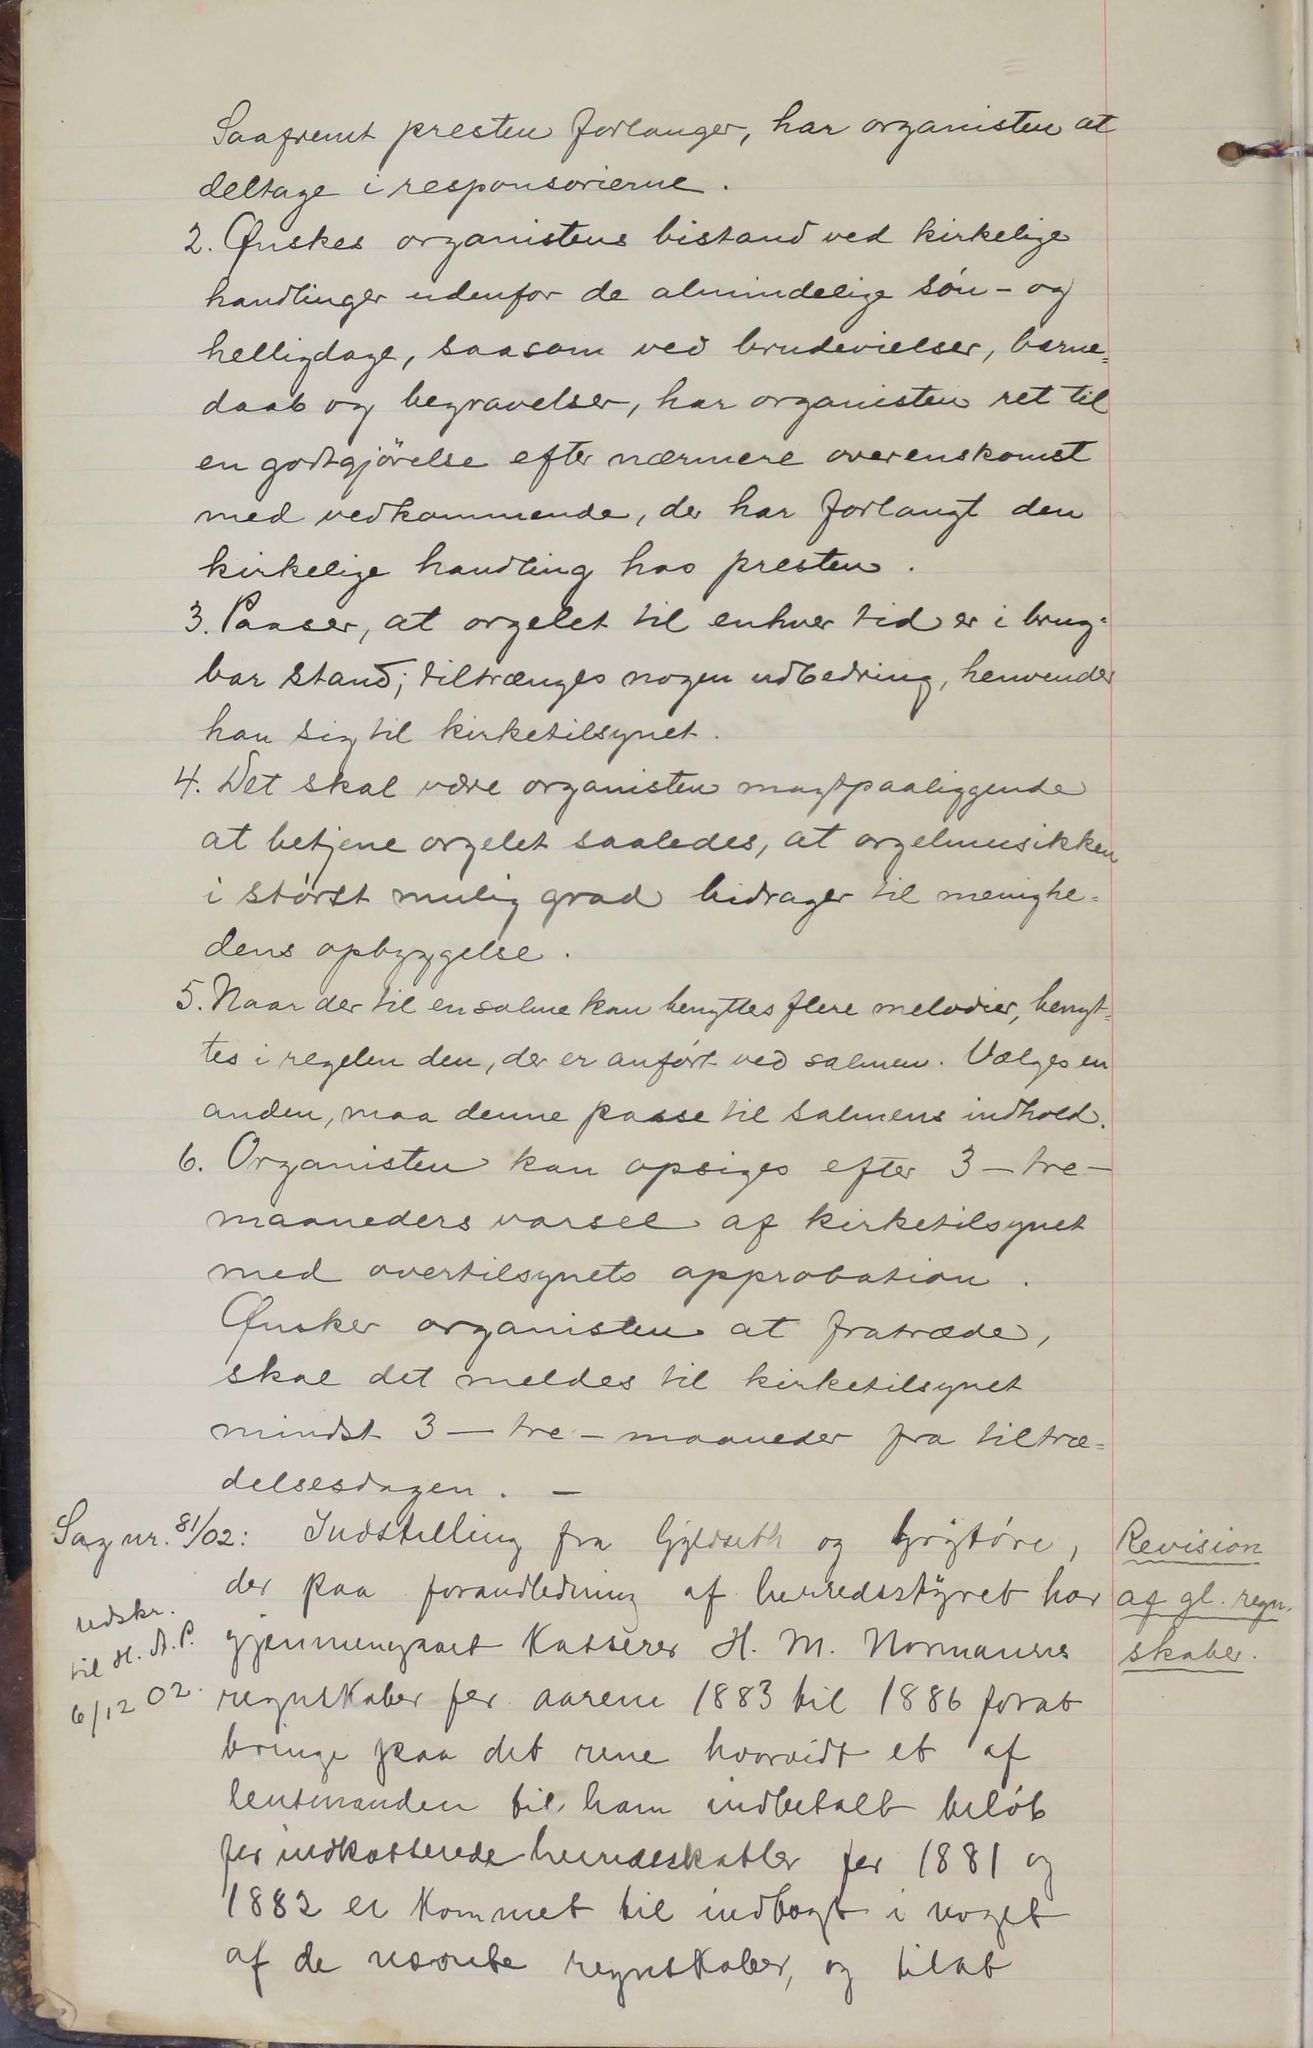 Saafremt presten forlanger, har organisten at
deltage i responsorierne.
2. Ønskes organistens bistand ved kirkelige
handlinger udenfor de almindelige søn- og
helligdage, saasom ved brudevielser, barne=
daab og begravelser, har organisten ret til
en godtgjörelse efter nærmere overenskomst
med vedkommende, der har forlangt den
kirkelige handling hos presten.
3. Paaser, at orgelet til enhver tid er i brug=
bar stand; tiltrænges nogen udbedring, henvender
han sig til kirketilsynet.
4. Det skal være organisten magtpaaliggende
at betjene orgelet saaledes, at orgelmusikken
i störst mulig grad bidrager til menighe=
dens opbyggelse.
5. Naar der til en salme kan benyttes flere melodier, benyt=
tes i regelen den, der er anfört ved salmen. Vælges en
anden, maa denne passe til salmens indhold.
6. Organisten kan opsiges efter 3 - tre -
maaneders varsel af kirketilsynet
med overtilsynets approbation.
Ønsker organisten at fratræde,
skal det meldes til kirketilsynet
mindst 3 - tre - maaneder fra tiltræ=
delsesdagen. -
Sag nr. 81/02: Indstilling fra Gjeldseth og Grytöre,
Revision
af gl. regn.
skaber.
udskr.
til H. A. P.
6/12 02.
der paa foranledning af herredsstyret har
gjennemgaaet Kasserer H. M. Normanns
regnskaber for aarene 1883 til 1886 forat
bringe paa det rene hvorvidt et af
lensmanden til ham indbetalt belöb
for indkasserede hundeskatter for 1881 og
1882 er kommet til indtægt i noget
af de nævnte regnskaber, og tilat